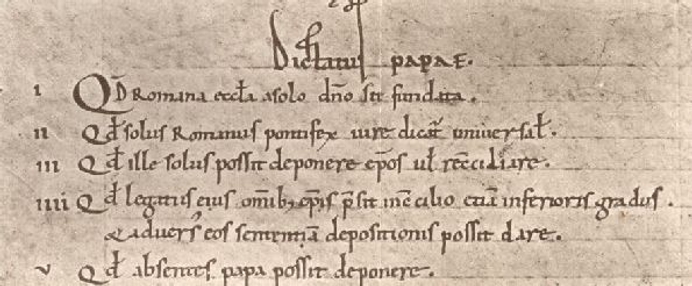 Dictatus papae.
I QD Romana eccła asolo dño sit fundata.
II Qđ solus Romanus pontifex iure dicat̃ universał.
III Qđ ille solus possit deponere ep̃os uł recc̃iliare.
IIII Qđ legatus eius om̃ib; ep̃is p̃sit inc̃cilio etiã inferioris gradus.
& advers' eos sententiã depositionis possit dare.
V Qđ absentes papa possit deponere.